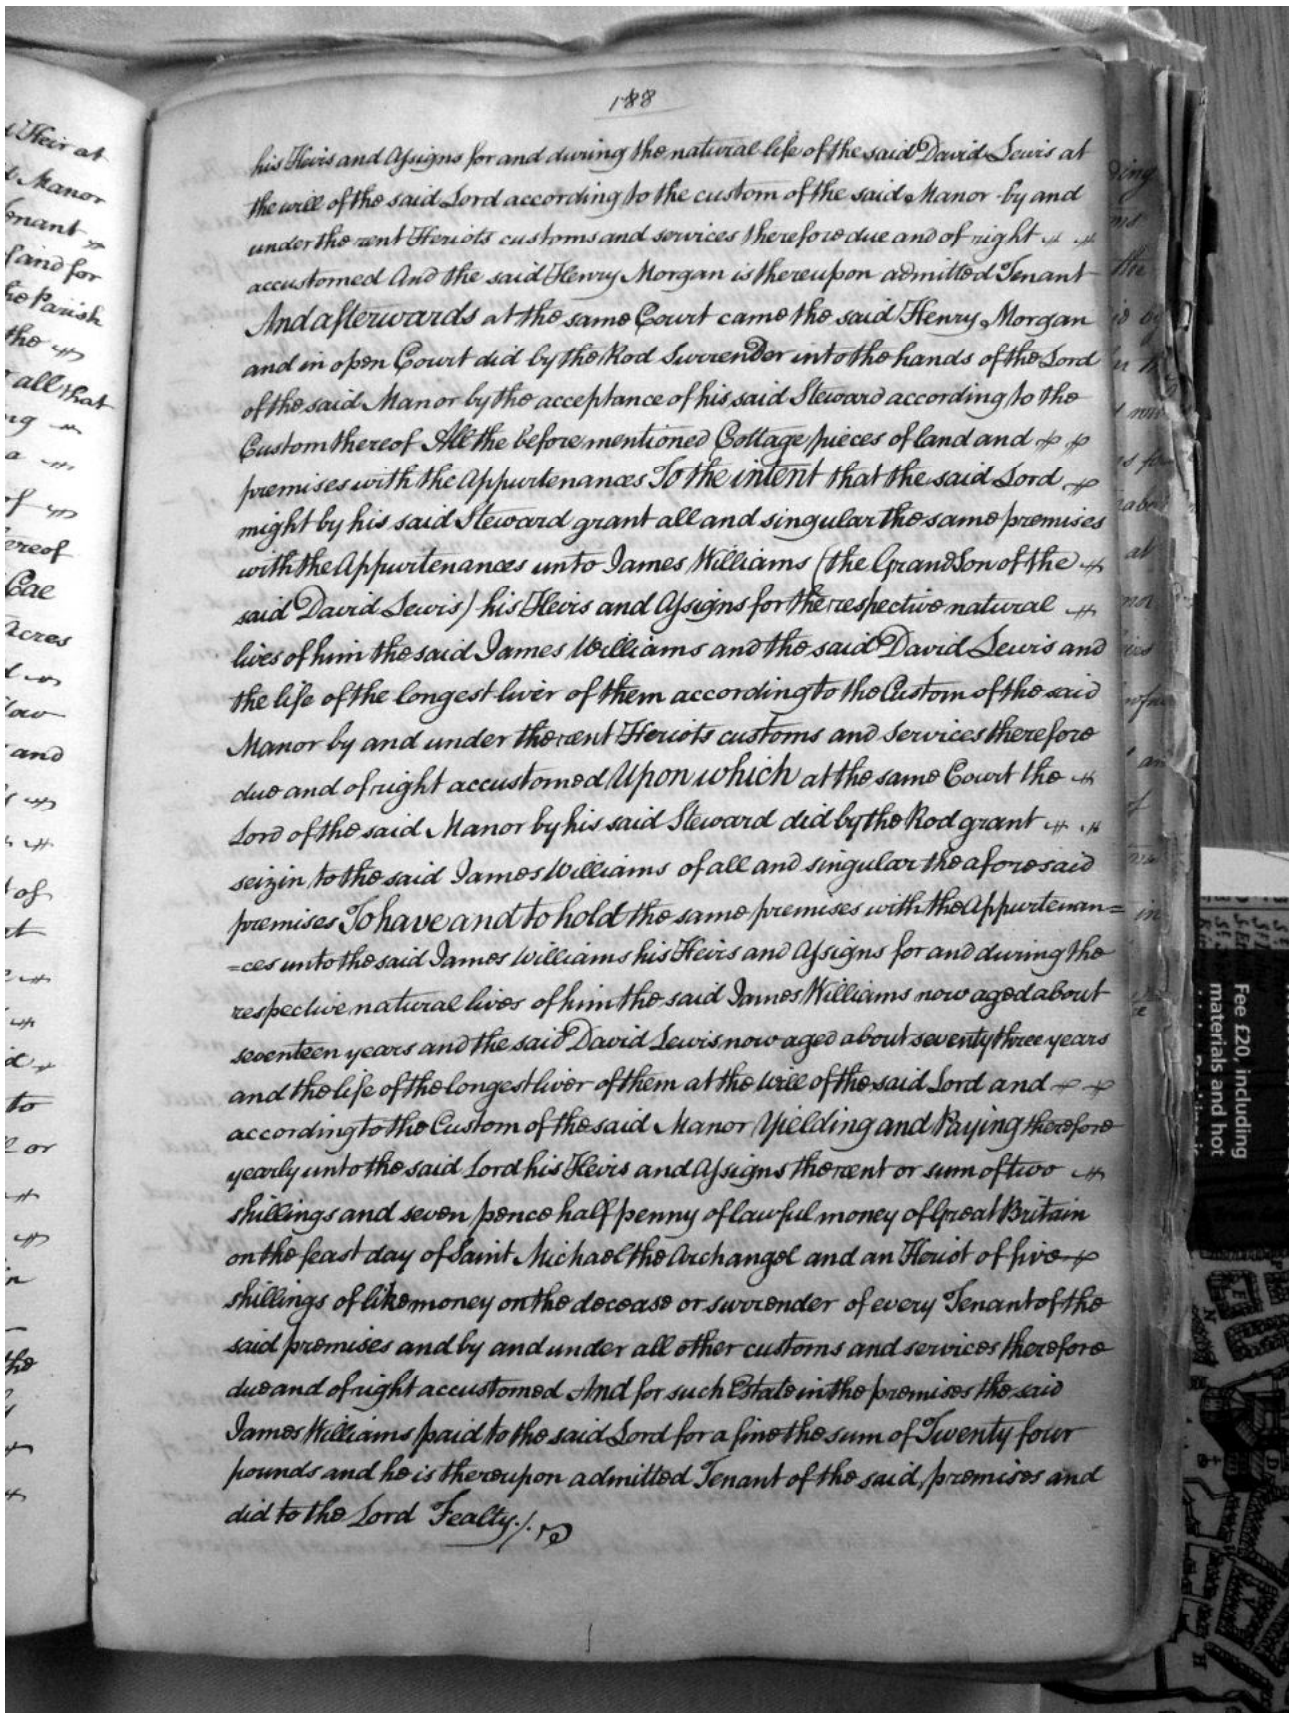 188
his Heirs and Assigns for and during the natural life of the said David Lewis at
the will of the said Lord according to the custom of the said Manor by and
under the rent Heriots customs and services therefore due and of right
accustomed And the said Henry Morgan is thereupon admitted Tenant
And afterwards at the same Court came the said Henry Morgan
and in open Court did by the Rod Surrender into the hands of the Lord
of the said Manor by the acceptance of his said Steward according to the
Custom thereof All the before mentioned Cottage pieces of land and
premises with the Appurtenances To the intent that the said Lord
might by his said Steward grant all and singular the same premises
with the Appurtenances unto James Williams (the GrandSon of the
said David Lewis) his Heirs and Assigns for the respective natural
lives of him the said James Williams and the said David Lewis and
the life of the longest liver of them according to the Custom of the said
Manor by and under the rent Heriots customs and services therefore
due and of right accustomed Upon which at the same Court the
Lord of the said Manor by his said Steward did by the Rod grant
seizin to the said James Williams of all and singular the aforesaid
premises To have and to hold the same premises with the Appurtenan=
=ces unto the said James Williams his Heirs and Assigns for and during the
respective natural lives of him the said James Williams now aged about
seventeen years and the said David Lewis now aged about seventy three years
and the life of the longest liver of them at the will of the said Lord and
according to the Custom of the said Manor Yielding and Paying therefore
yearly unto the said Lord his Heirs and Assigns the rent or sum of two
shillings and seven pence half penny of lawful money of Great Britain
on the feast day of Saint Michael the Archangel and an Heriot of five
shillings of like money on the decease or surrender of every Tenant of the
said premises and by and under all other customs and services therefore
due and of right accustomed And for such Estate in the premises the said
James Williams paid to the said Lord for a fine the sum of Twenty four
pounds and he is thereupon admitted Tenant of the said premises and
did to the Lord Fealty./.
Heir at
Manor
Tenant
land for
the Parish
the
all that
a
of
ereof
Cae
Acres
and
of
to
or
the
Fee £20, including
materials and hot